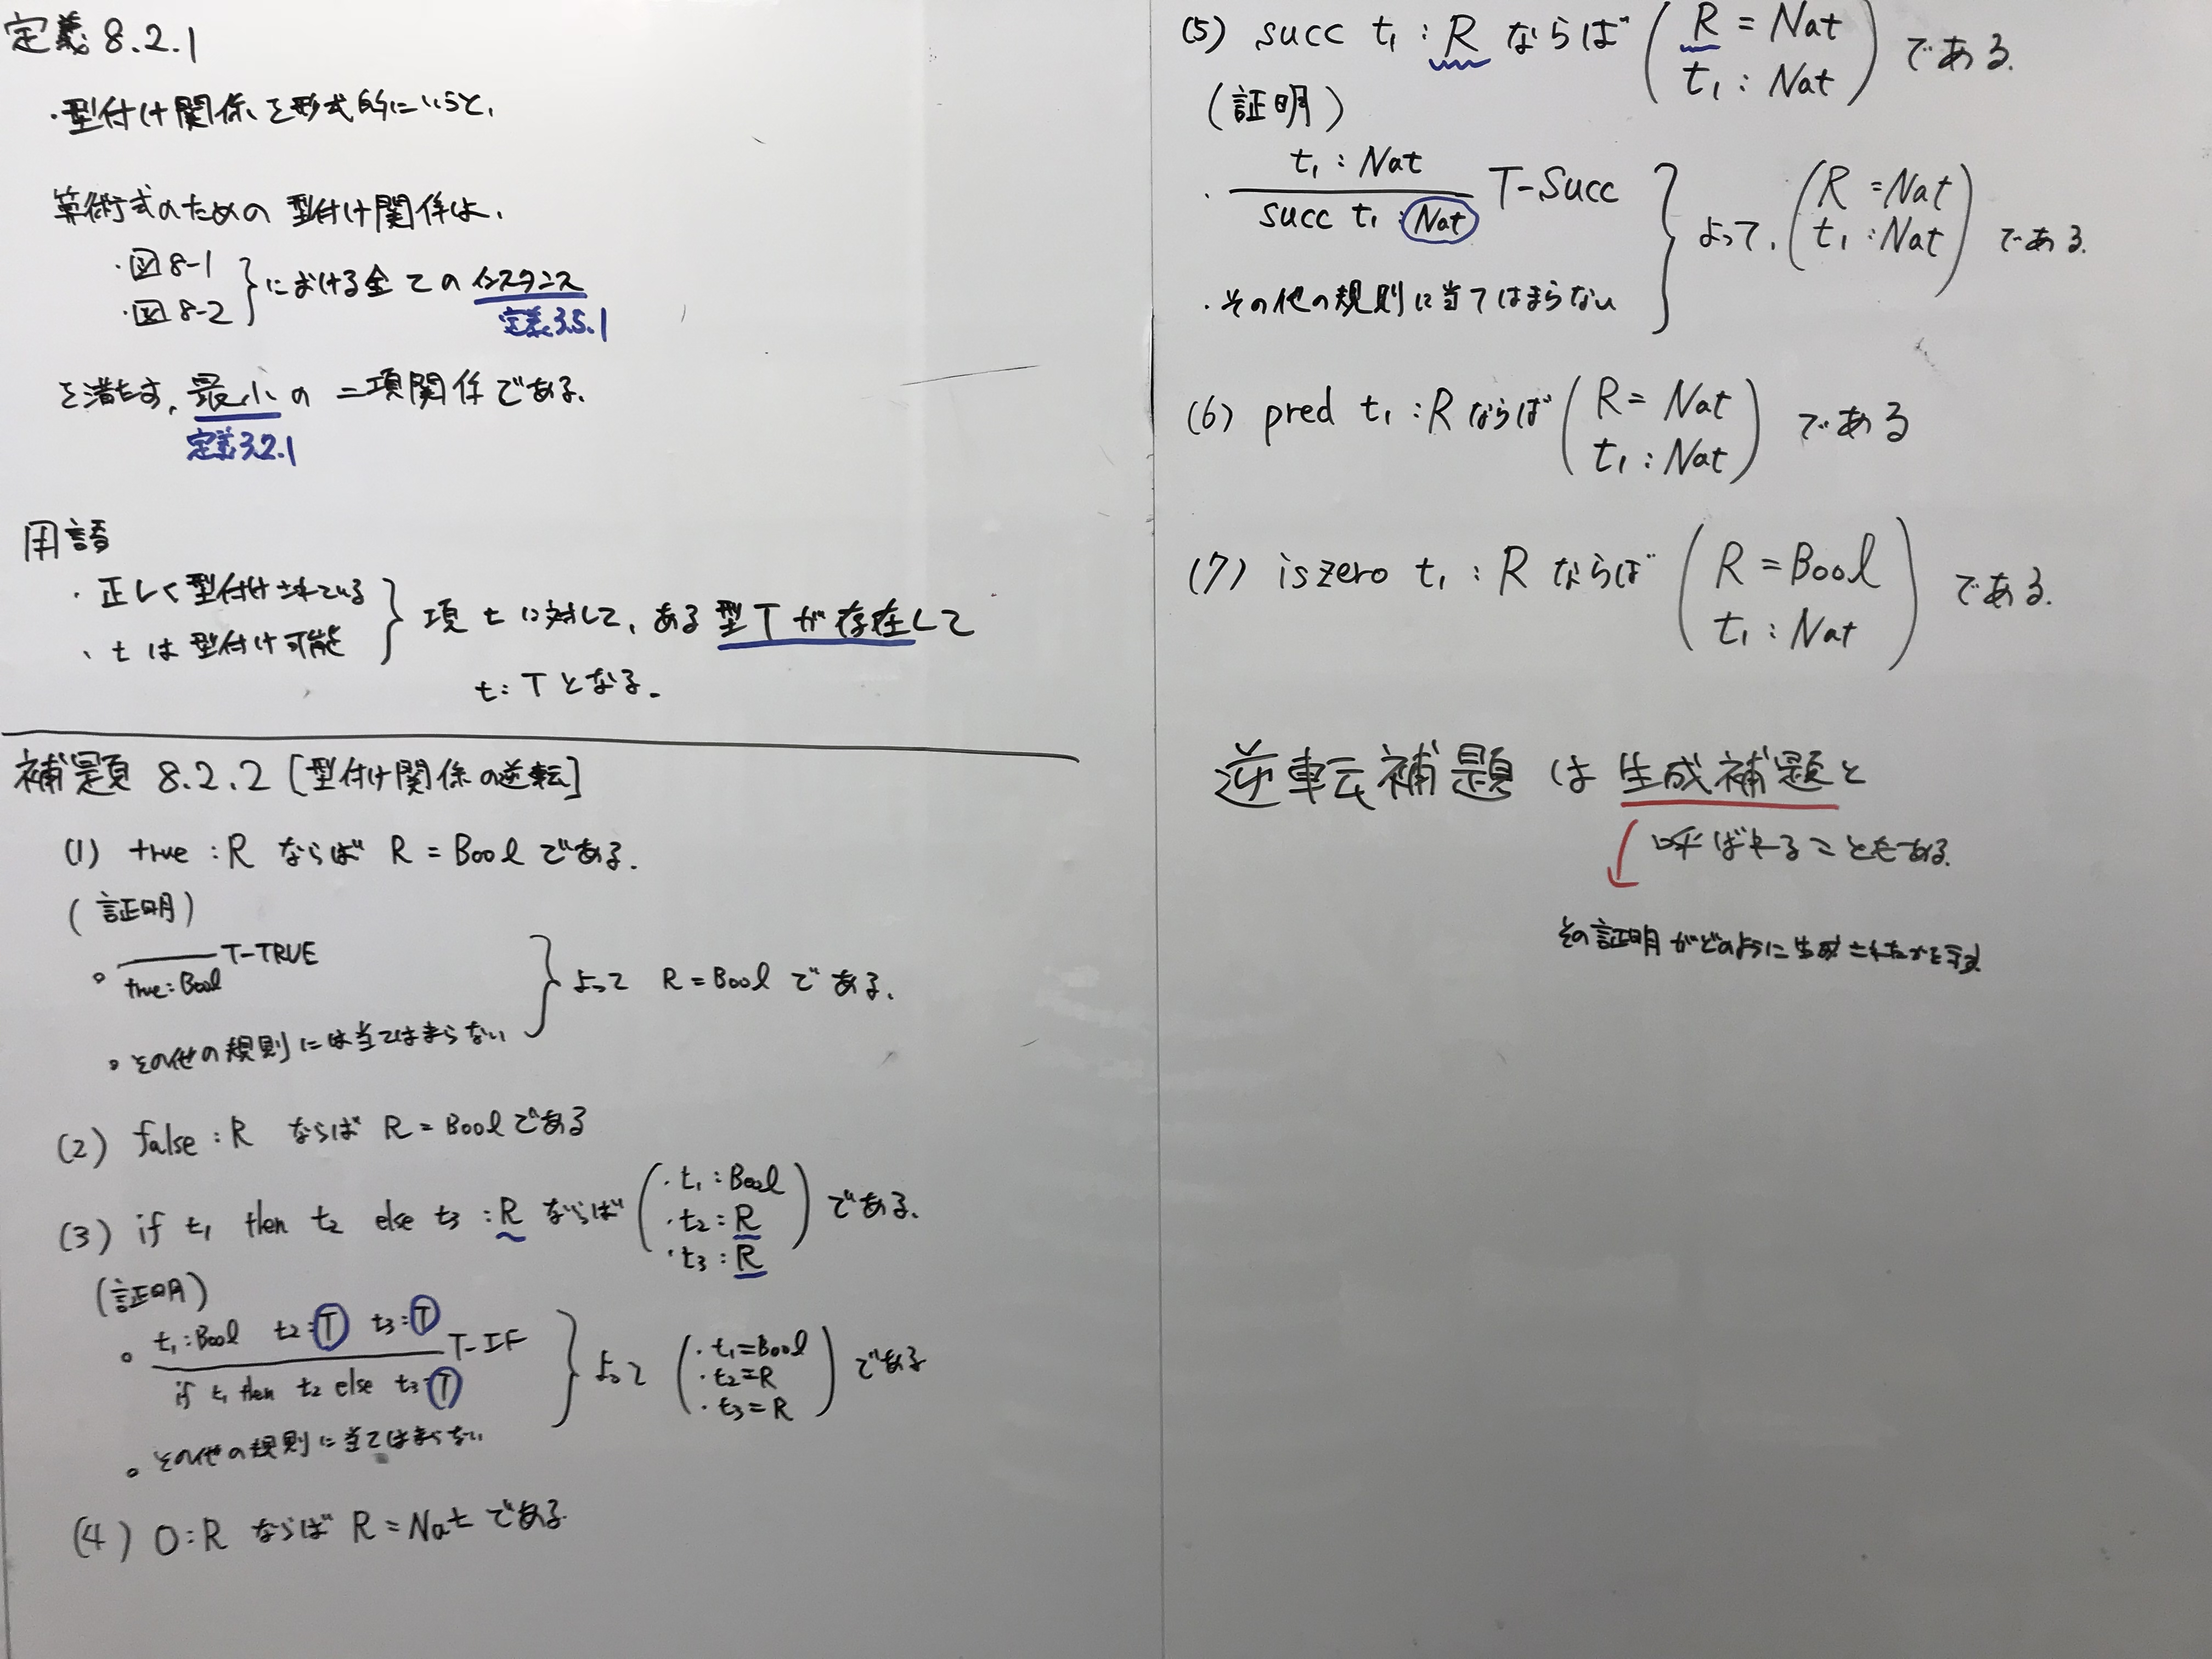 定義 8.2.1
・型付け関係を形式的にいうと、
算術式のための 型付け関係は、
・図8-1
・図8-2 } における全ての インスタンス
定義3.5.1
を満たす、最小の 二項関係である。
定義3.2.1
用語
・正しく型付けされている
・tは型付け可能 } 項 t に対して、ある型Tが存在して
t:Tとなる。
補題 8.2.2 [型付け関係の逆転]
(1) true : R ならば R = Bool である.
(証明)
◦ ――― T-TRUE
true:Bool
◦ その他の規則には当てはまらない } よって R=Bool である.
(2) false : R ならば R = Bool である
(3) if t1 then t2 else t3 : R ならば ( ・t1 : Bool
・t2 : R
・t3 : R ) である.
(証明)
◦ t1:Bool t2:T t3:T
――― T-IF
if t1 then t2 else t3:T
◦ その他の規則に当てはまらない } よって ( ・t1=Bool
・t2=R
・t3=R ) である
(4) 0:R ならば R = Nat である
(5) succ t1 : R ならば ( R = Nat
t1 : Nat ) である.
(証明)
・ t1 : Nat
――― T-Succ
succ t1 : Nat
・その他の規則に当てはまらない } よって, ( R = Nat
t1 : Nat ) である.
(6) pred t1 : R ならば ( R = Nat
t1 : Nat ) である
(7) iszero t1 : R ならば ( R = Bool
t1 : Nat ) である.
逆転補題 は 生成補題と
呼ばれることもある.
その証明がどのように生成されたかを示す